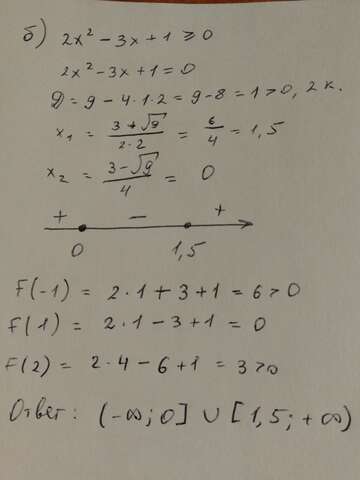 б) 2x² - 3x + 1 ⩾ 0
2x² - 3x + 1 = 0
D = 9 - 4·1·2 = 9 - 8 = 1 > 0, 2 к.
x₁ = (3+√9)/(2·2) = 6/4 = 1,5
x₂ = (3-√9)/4 = 0
+ - +
0 1,5
F(-1) = 2·1 + 3 + 1 = 6 > 0
F(1) = 2·1 - 3 + 1 = 0
F(2) = 2·4 - 6 + 1 = 3 > 0
Ответ: (-∞; 0] ∪ [1,5; +∞)